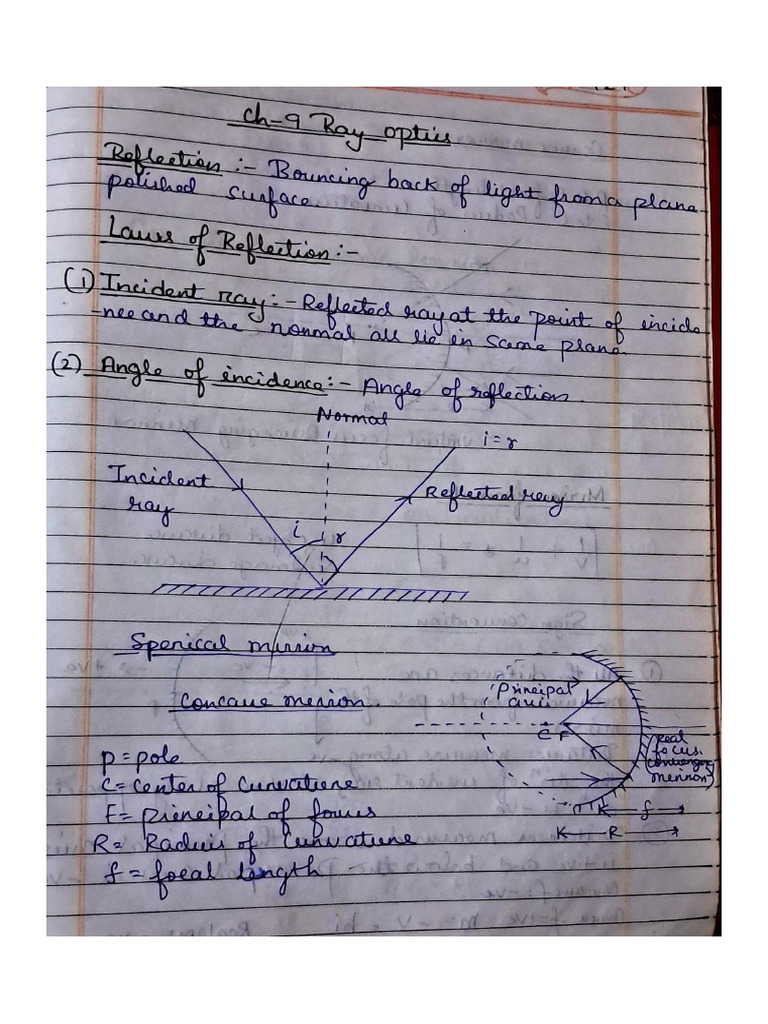 Ch-9 Ray optics
Reflection :- Bouncing back of light from a plane
polished surface
Laws of Reflection :-
(1) Incident ray :- Reflected ray at the point of incide
-nce and the normal all lie in same plane
(2) Angle of incidence :- Angle of reflection.
Normal
i = r
Incident
ray
Reflected ray
i
r
Sperical mirror
Principal
axis
Concave mirror
C F
(Real
focus.
converging
mirror)
P = pole
C = center of curvature
F = principal of focus
R = Radius of curvature
f = focal length
f
R